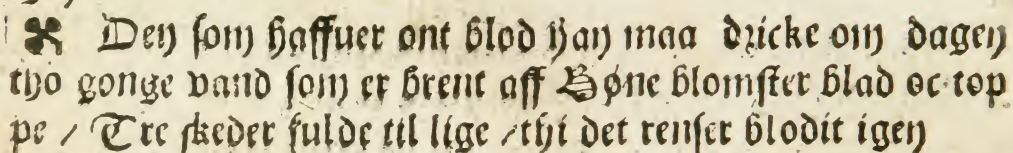 Den som haffuer ont blod han maa dricke om dagen
tho gonge vand som er brent aff Bøne blomster blad oc top
pe / Tre skeder fulde til lige / thi det renser blodit igen